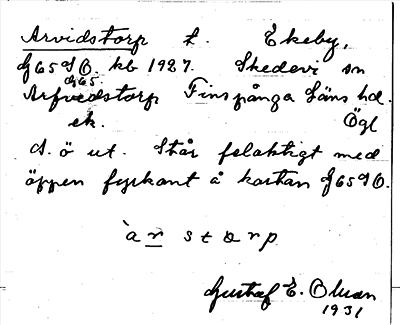 Arvidstorp t. Ekeby,
g65SO. kb 1927. Skedevi sn
g65.
Arfvedstorp Finspånga läns hd.
ek. Ögl
A. ö ut. Står felaktigt med
öppen fyrkant å kartan g65SO.
`a r s t o r p
Gustaf E. Olsson
1931